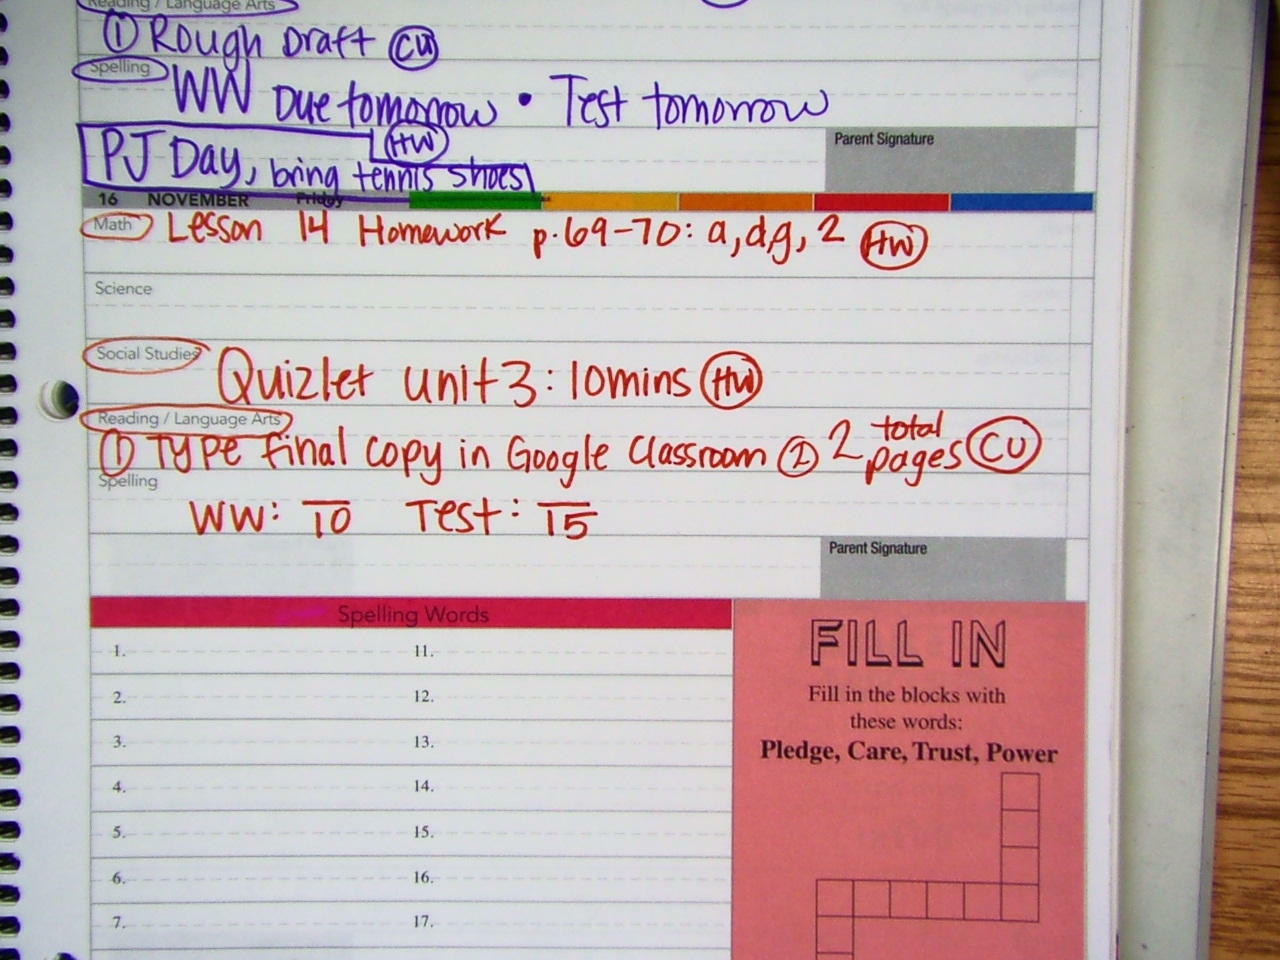 Reading / Language Arts
① Rough Draft CU
Spelling
WW Due tomorrow • Test tomorrow
HW
PJ Day, bring tennis shoes
Parent Signature
16 NOVEMBER Friday
Math Lesson 14 Homework p. 69-70: a, d, g, 2 HW
Science
Social Studies
Quizlet unit 3: 10mins HW
Reading / Language Arts
① TYPE final copy in Google Classroom ② 2 total pages CU
Spelling
WW: /10 Test: /15
Parent Signature
Spelling Words
1. 11.
2. 12.
3. 13.
4. 14.
5. 15.
6. 16.
7. 17.
FILL IN
Fill in the blocks with
these words:
Pledge, Care, Trust, Power